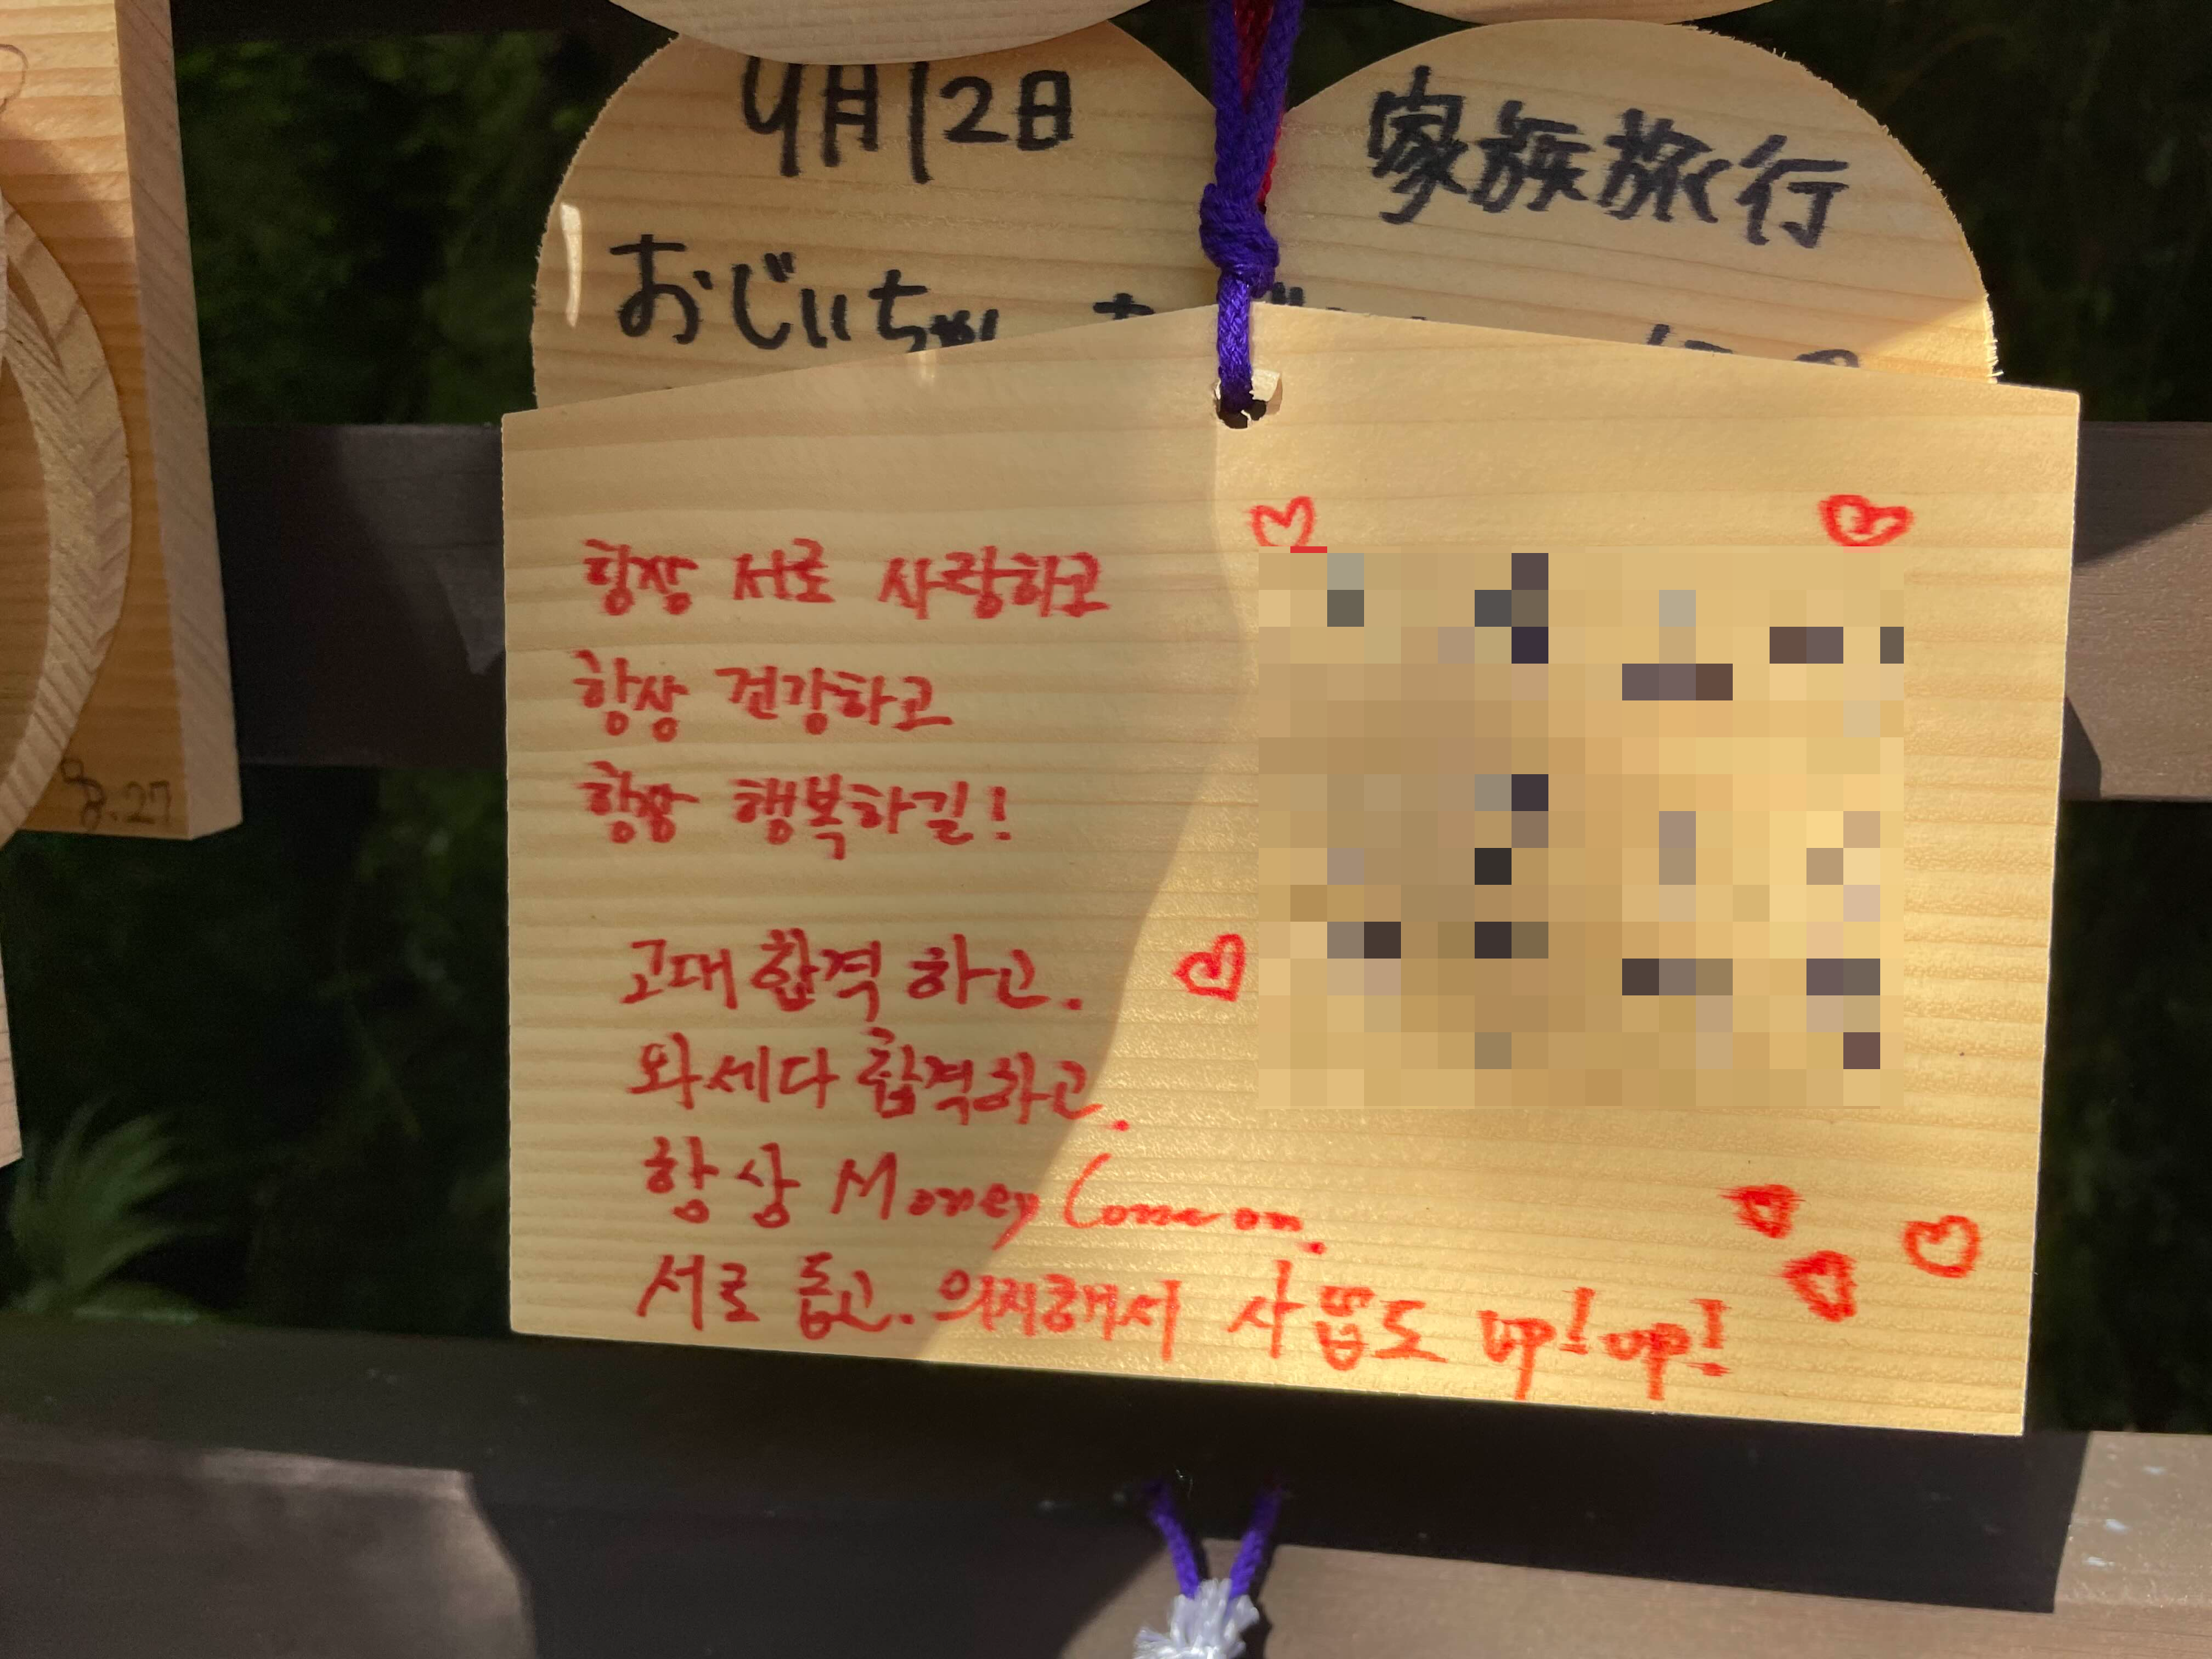 9月12日
おじいちゃん
家族旅行
8.27
항상 서로 사랑하고
항상 건강하고
항상 행복하길!
고대 합격 하고.
와세다 합격하고.
항상 Money Come on.
서로 돕고. 의지해서 사뿜도 up! up!